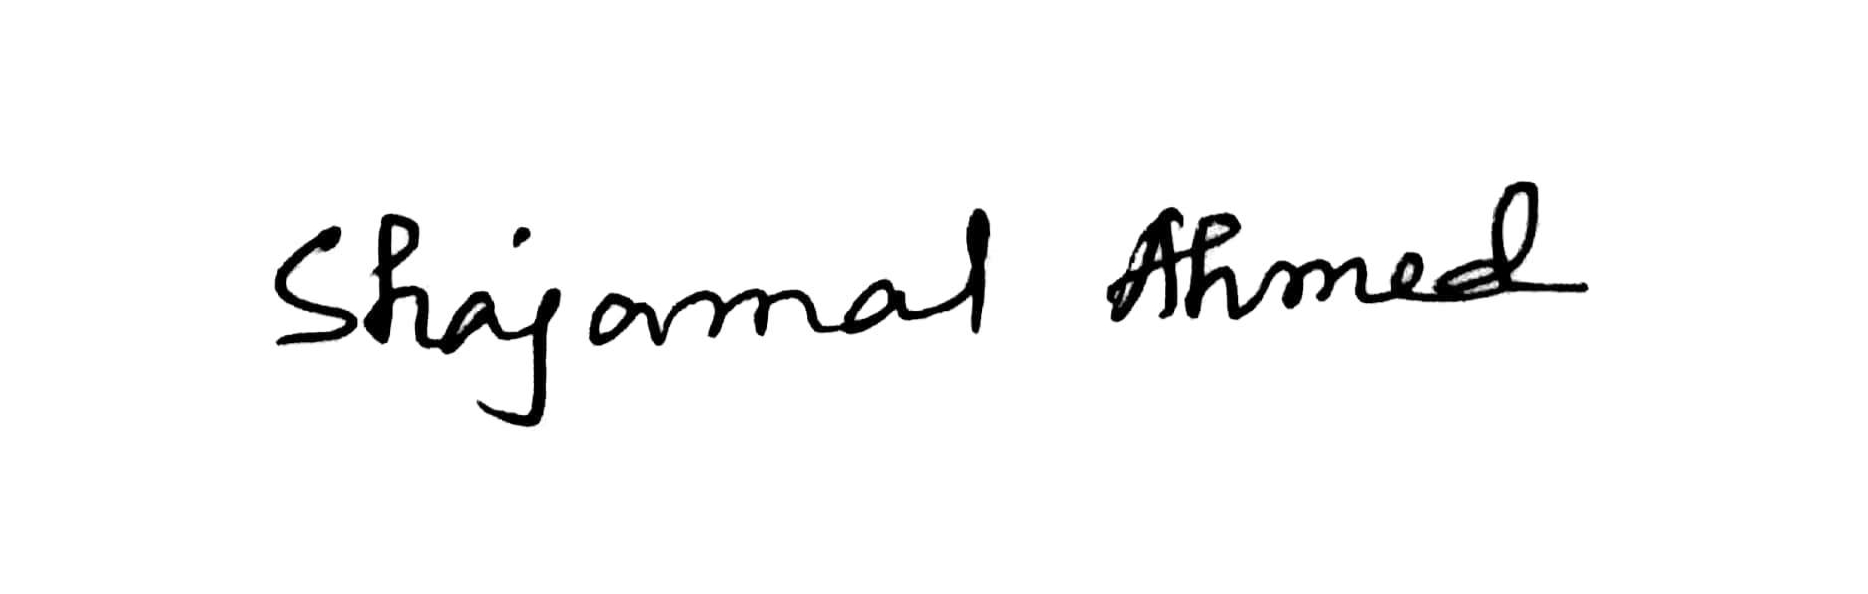 Shajamal Ahmed